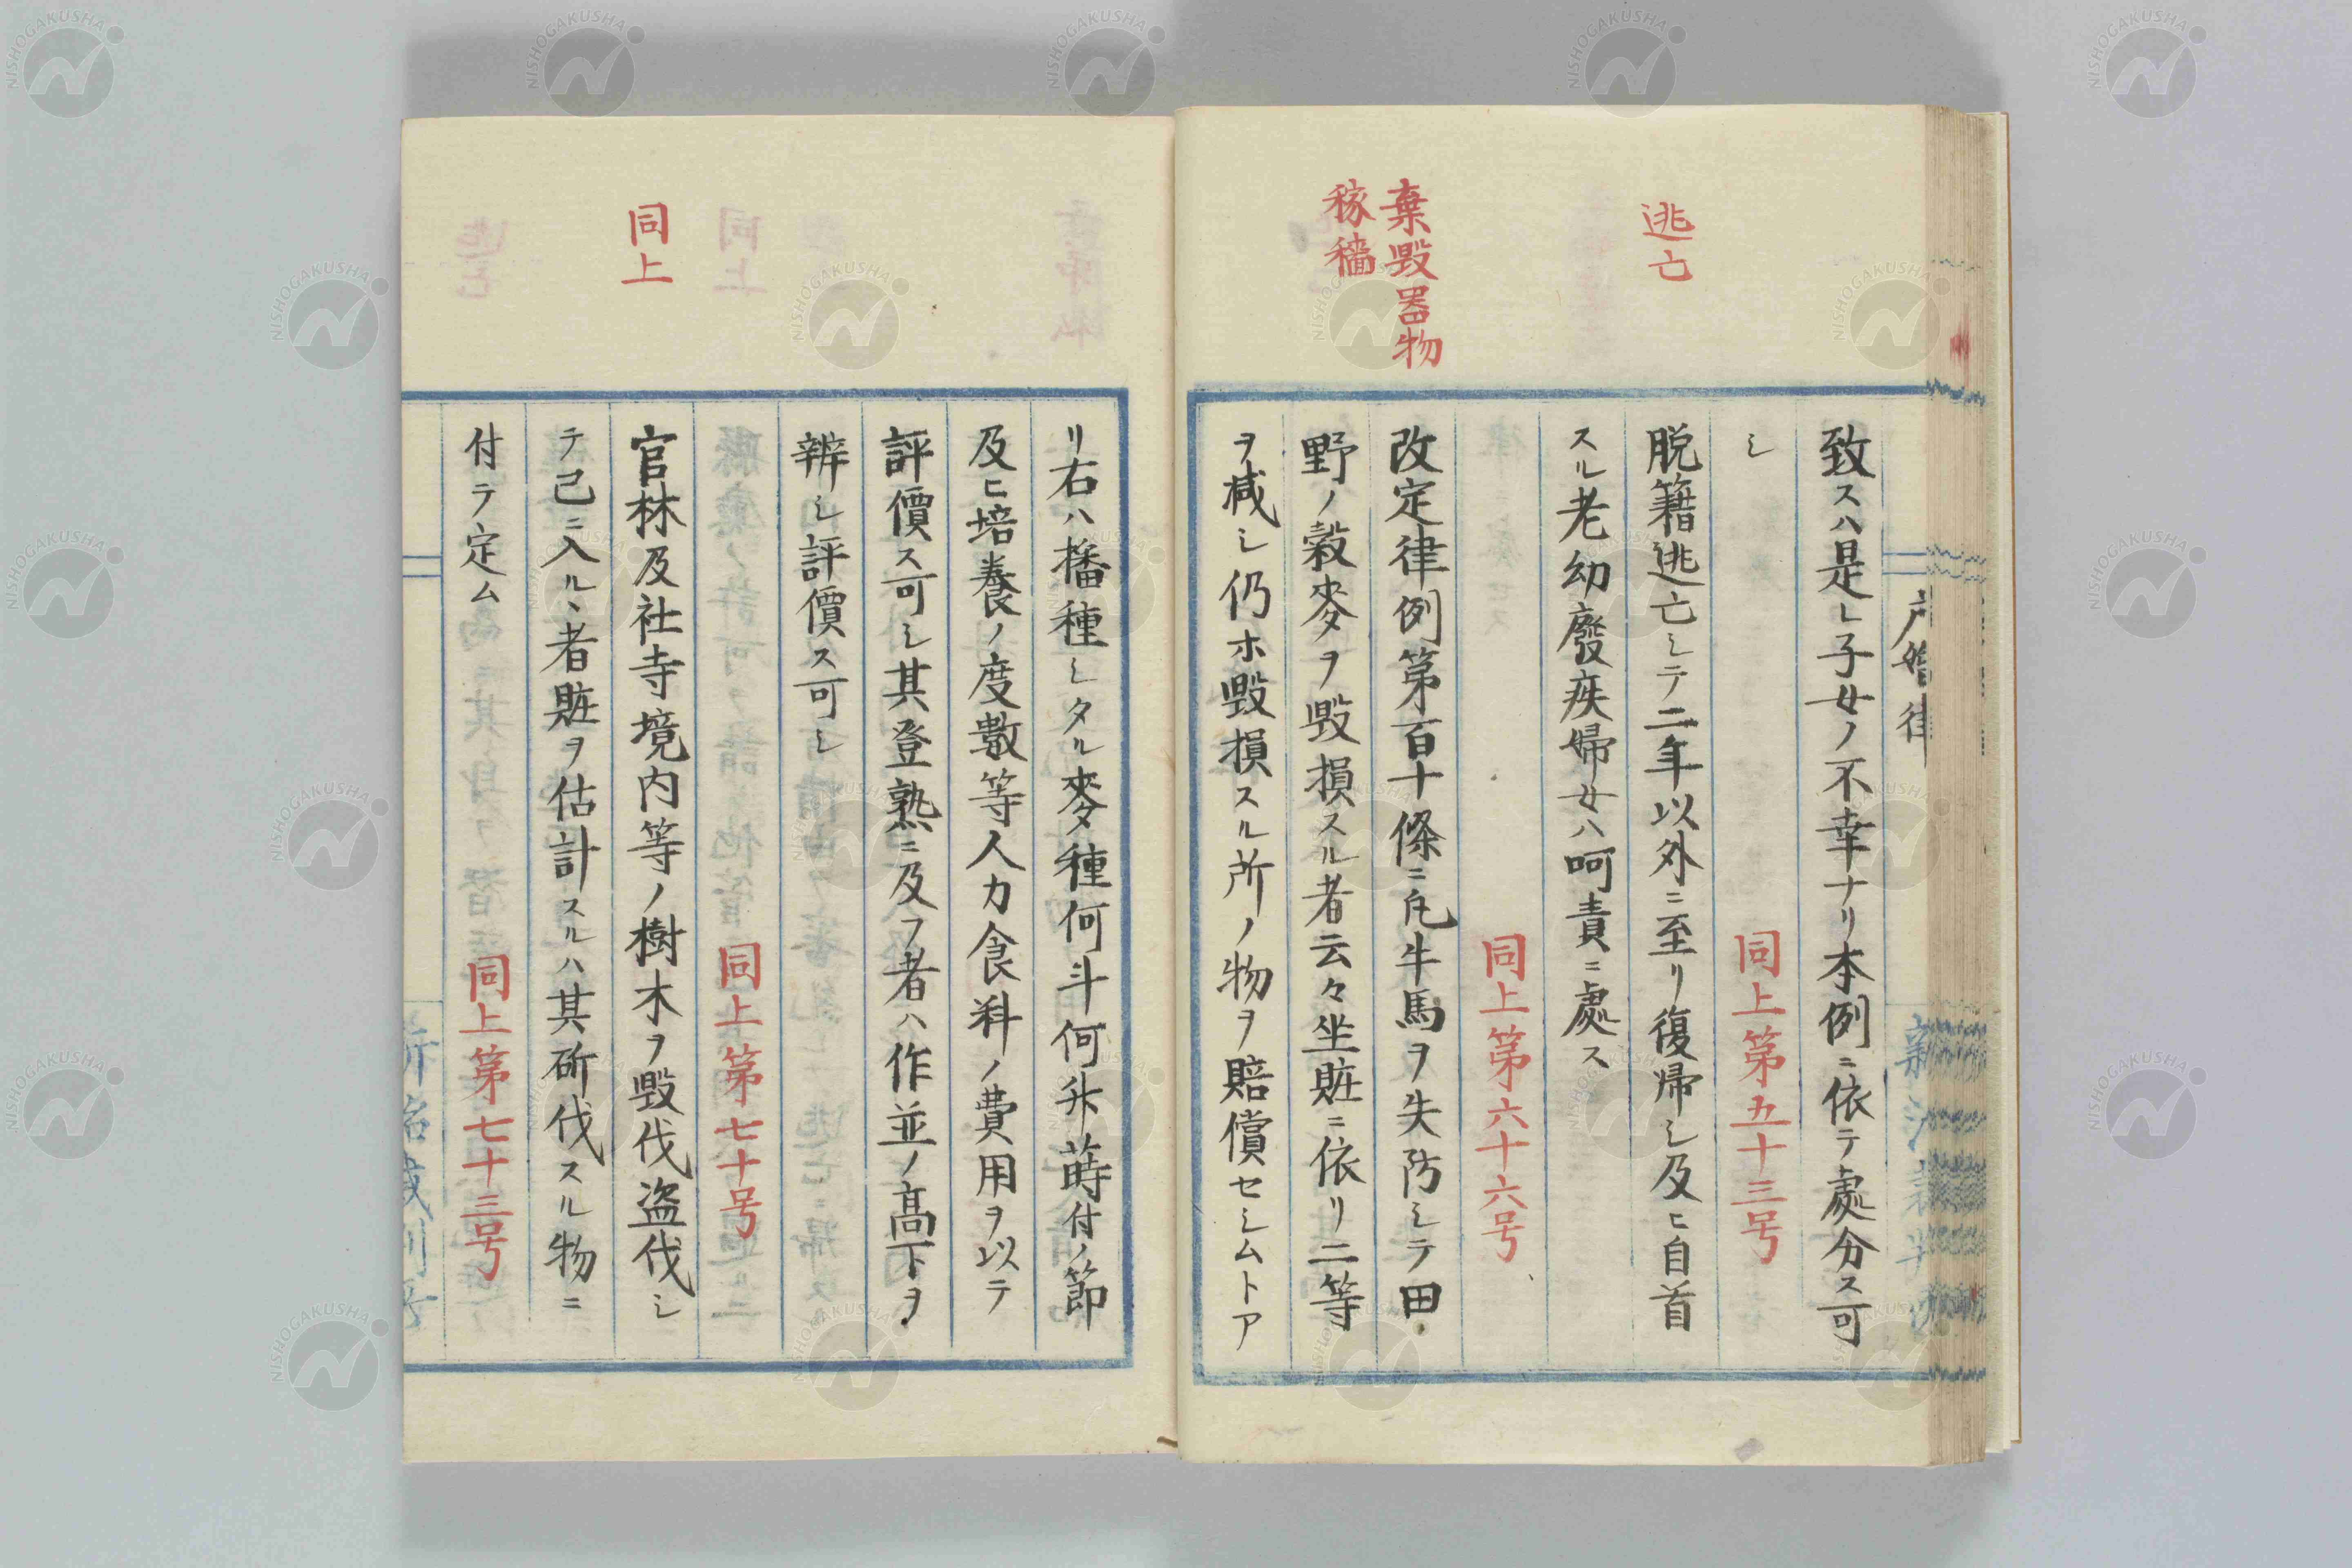 戸婚律
逃亡
棄毀器物
稼穡
致スハ是レ子女ノ不幸ナリ本例ニ依テ處分ス可
シ
同上第五十三号
脱籍逃亡シテ二年以外ニ至リ復帰シ及ヒ自首
スル老幼廢疾婦女ハ呵責ニ處ス
同上第六十六号
改定律例第百十條ニ凡牛馬ヲ失防シテ田
野ノ穀麥ヲ毀損スル者云々坐賍ニ依リ二等
ヲ减シ仍ホ毀損スル所ノ物ヲ賠償セシムトア
同上
リ右ハ播種シタル麥種何斗何升蒔付ノ節
及ヒ培養ノ度數等人力食料ノ費用ヲ以テ
評價ス可シ其登熟ニ及フ者ハ作並ノ髙下ヲ
辨シ評價ス可シ
同上第七十号
官林及社寺境内等ノ樹木ヲ毀伐盗伐シ
テ己ニ入ルヽ者賍ヲ估計スルハ其斫伐スル物ニ
付テ定ム
同上第七十三号
NISHOGAKUSHA